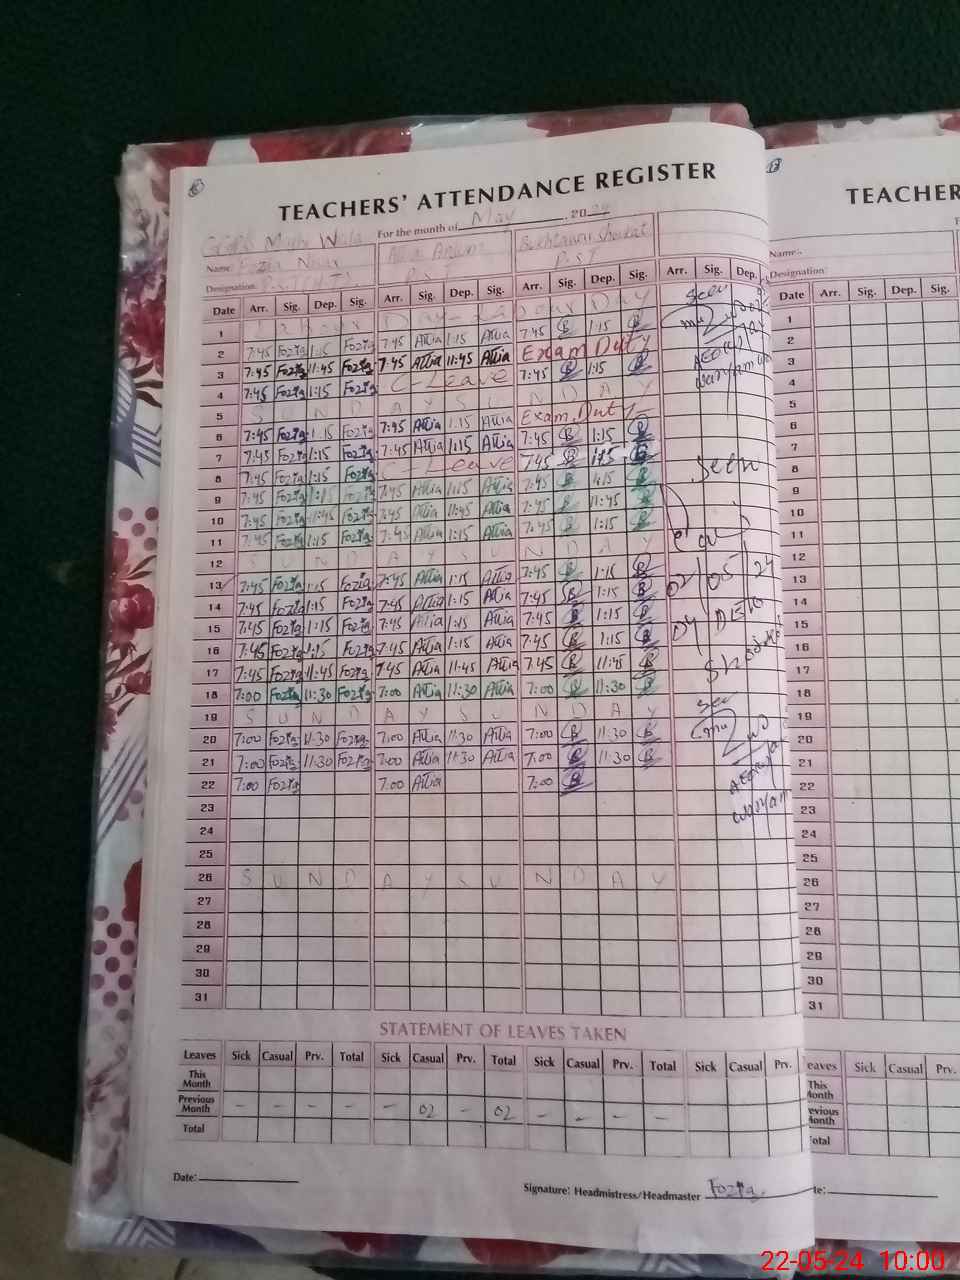 TEACHERS' ATTENDANCE REGISTER
For the month of May, 2024
Name: Fozia Attia Bukhtawar Shoukat
Designation: P.S.T P.S.T
Date Arr. Sig. Dep. Sig. Arr. Sig. Dep. Sig. Arr. Sig. Dep. Sig. Arr. Sig. Dep.
1 Labour Day - Labour Day
2 7:45 Fozia 1:15 Fozia 7:45 Attia 1:15 Attia 7:45 B 1:15 B
3 7:45 Fozia 11:45 Fozia 7:45 Attia 11:45 Attia Exam Duty
4 7:45 Fozia 1:15 Fozia C-Leave 7:45 B 1:15 B
5 S U N D A Y S U N D A Y
6 7:45 Fozia 1:15 Fozia 7:45 Attia 1:15 Attia Exam Duty
7 7:45 Fozia 1:15 Fozia 7:45 Attia 1:15 Attia 7:45 B 1:15 B
8 7:45 Fozia 1:15 Fozia C-Leave 7:45 B 1:15 B
9 7:45 Fozia 1:15 Fozia 7:45 Attia 1:15 Attia 7:45 B 1:15 B
10 7:45 Fozia 11:45 Fozia 7:45 Attia 11:45 Attia 7:45 B 11:45 B
11 7:45 Fozia 1:15 Fozia 7:45 Attia 1:15 Attia 7:45 B 1:15 B
12 S U N D A Y S U N D A Y
13 7:45 Fozia 1:15 Fozia 7:45 Attia 1:15 Attia 7:45 B 1:15 B
14 7:45 Fozia 1:15 Fozia 7:45 Attia 1:15 Attia 7:45 B 1:15 B
15 7:45 Fozia 1:15 Fozia 7:45 Attia 1:15 Attia 7:45 B 1:15 B
16 7:45 Fozia 1:15 Fozia 7:45 Attia 1:15 Attia 7:45 B 1:15 B
17 7:45 Fozia 11:45 Fozia 7:45 Attia 11:45 Attia 7:45 B 11:45 B
18 7:00 Fozia 11:30 Fozia 7:00 Attia 11:30 Attia 7:00 B 11:30 B
19 S U N D A Y S U N D A Y
20 7:00 Fozia 11:30 Fozia 7:00 Attia 11:30 Attia 7:00 B 11:30 B
21 7:00 Fozia 11:30 Fozia 7:00 Attia 11:30 Attia 7:00 B 11:30 B
22 7:00 Fozia 7:00 Attia 7:00 B
23
24
25
26 S U N D A Y S U N D A Y
27
28
29
30
31
Seen
Seen
02/05/24
DY DEO
STATEMENT OF LEAVES TAKEN
Leaves Sick Casual Prv. Total Sick Casual Prv. Total Sick Casual Prv. Total Sick Casual Prv.
This Month
Previous Month - - - - - 02 - 02 - - - -
Total
Date:
Signature: Headmistress/Headmaster Fozia
TEACHER
Name:
Designation:
Date Arr. Sig. Dep. Sig.
1
2
3
4
5
6
7
8
9
10
11
12
13
14
15
16
17
18
19
20
21
22
23
24
25
26
27
28
29
30
31
eaves Sick Casual Prv.
This
onth
evious
onth
otal
te:
22-05-24 10:00